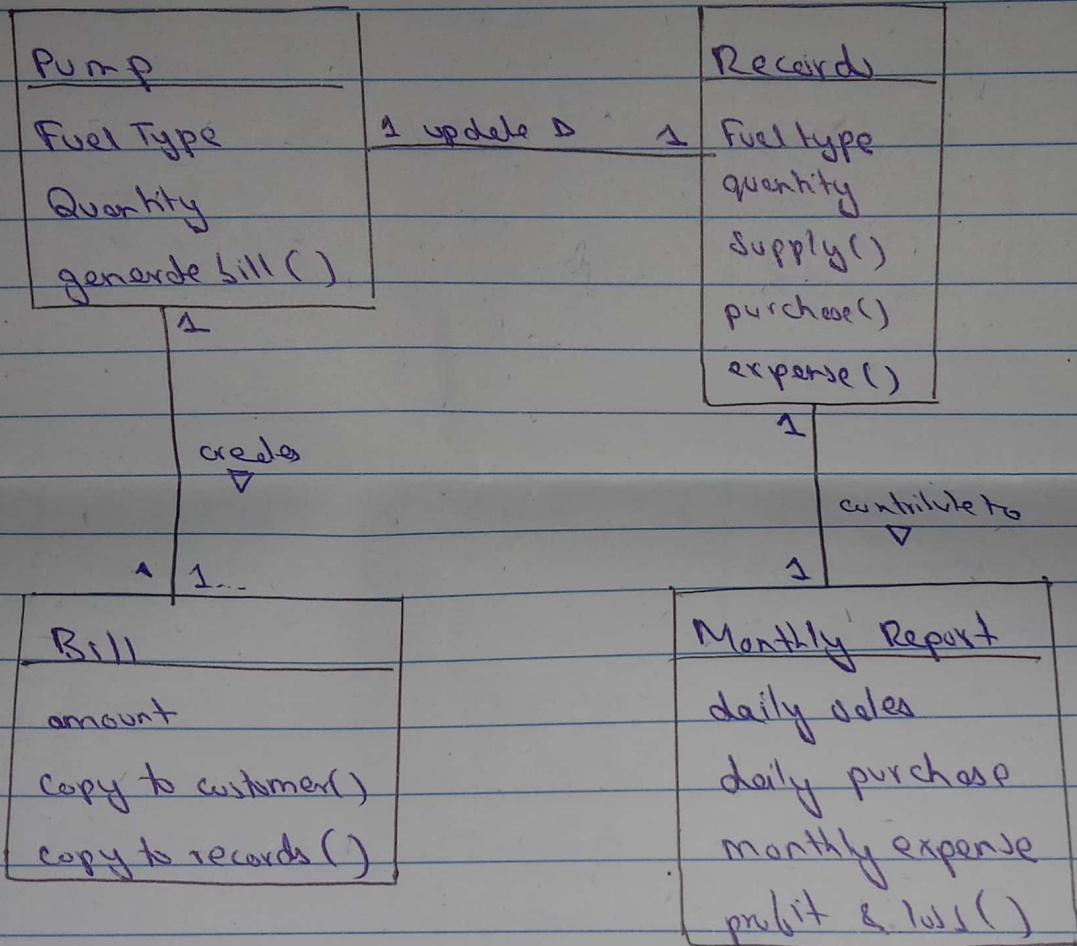 Pump
Fuel Type
Quantity
generate bill()
1 update ▷ 1
Records
Fuel type
quantity
Supply()
purchase()
expense()
1
creates
▽
1...
1
contribute to
▽
1
Bill
amount
copy to customer()
copy to records()
Monthly Report
daily sales
daily purchase
monthly expense
profit & loss()